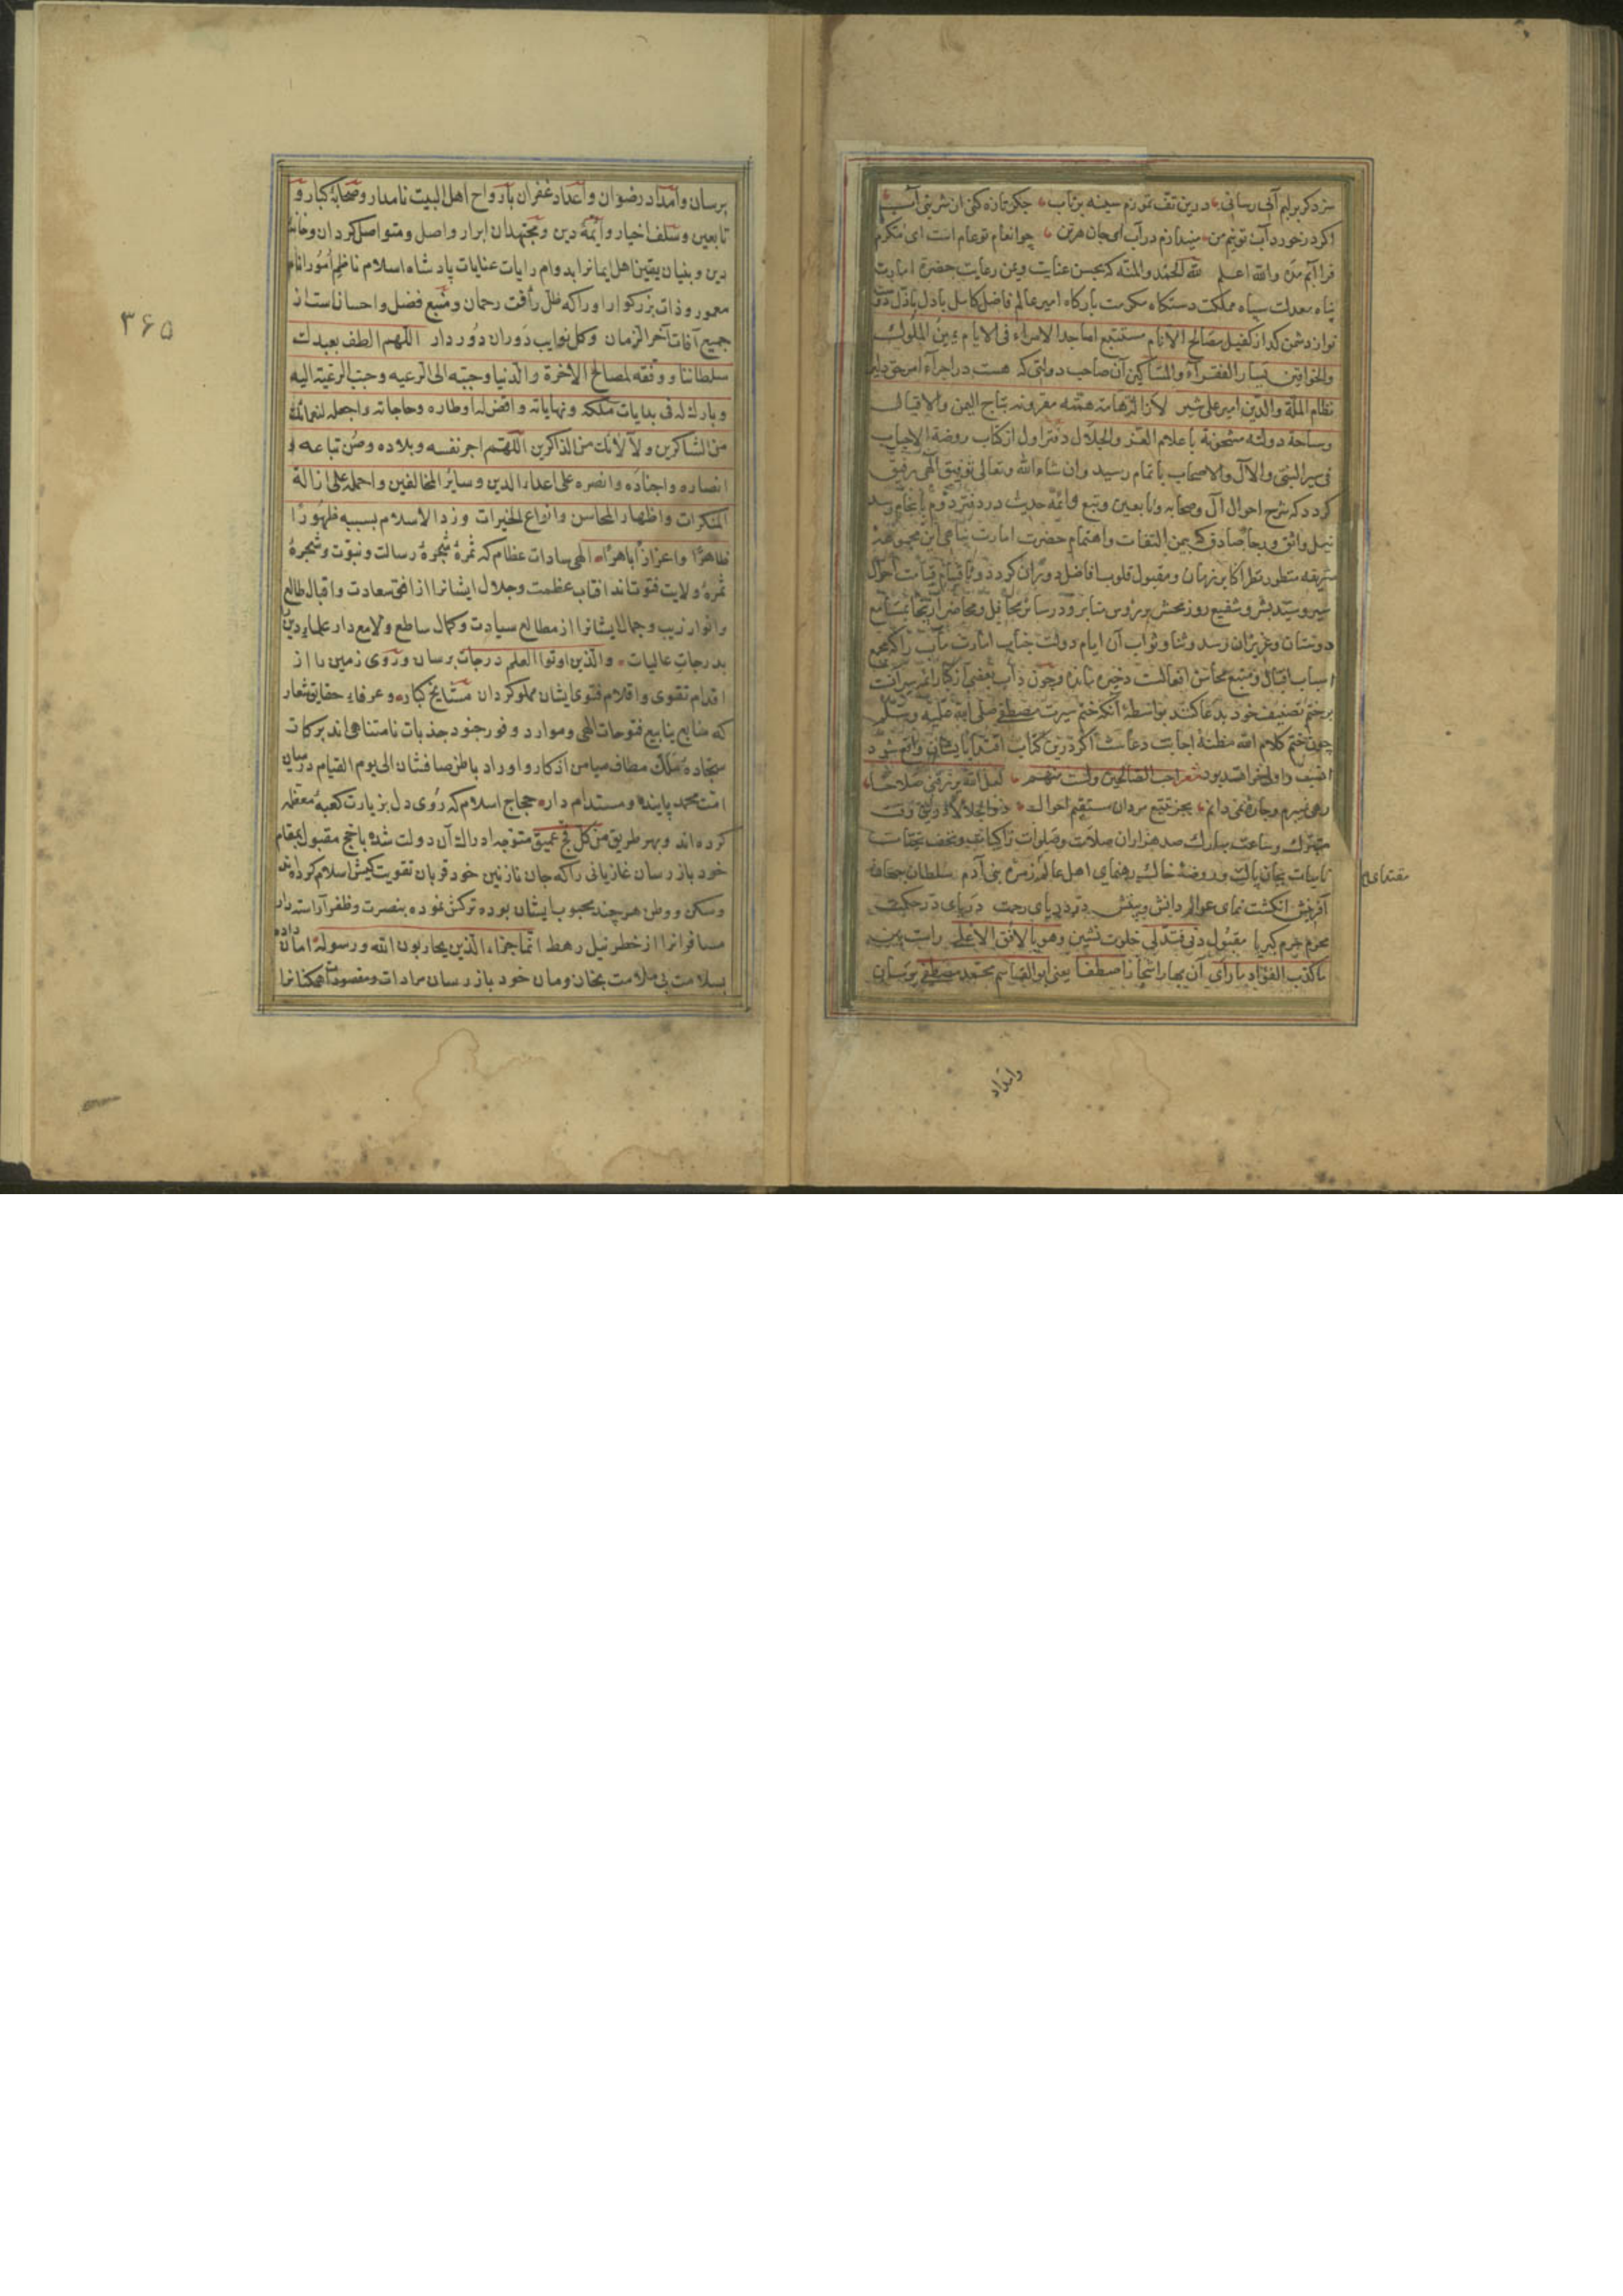 سزد کر برلبم آبی رسانی درین تف تموزم سینه برتاب جکر تازه کنی از شربتی آب
اکر درخورد آب تو نیم من میندازم در آب ای جان من جو انعام تو عام است ای مکرم
فراآبم ده والله اعلم لله الحمد والمنه که بحسن عنایت ویمن رعایت حضرة امارت
پناه معدلت سپاه مملکت دستکاه مکرمت بارکاه امیر عالم فاضل کامل باذل
کفیل مصالح الانام مستتبع اماجد الامراء فی الایام یمین الملوک
والخواقین یسار الفقرآء والمساکین آن صاحب دولتی که هست در اجراء امر حق دلیر
نظام الملة والدین امیر علی شیر لازالت هامة همته مقرونه بتاج الیمن والاقبال
وساحة دولته مشحونة باعلام العز والجلال دفتر اول از کتاب روضة الاحباب
فی سیر النبی والآل والاصحاب باتمام رسید وان شاء الله وتعالی توفیق الهی رفیق
کردد که شرح احوال آل وصحابه وتابعین وتبع وائمه حدیث در دفتر دوم بانجام رسد
واثق ورجا صادق که بیمن التفات واهتمام حضرت امارت پناهی این مجموعه
شریفه منظور نظر اکابر زمان ومقبول قلوب افاضل دوران کردد وتا قیام قیامت احوال
سیر وسید بشر وشفیع روز محشر بر رؤس منابر ودر سائر محافل ومحاضر بمسامع
دوستان وعزیزان رسد وثنا وثواب آن ایام دولت جناب امارت مآب را که مجمع
اسباب اقبال ومنبع محاسن افعالست ذخیره باند وچون دأب بعضی از کابر ائمه سیر آنست
بر ختم تصنیف خود بدعا کنند بواسطه آنکه ختم سیرت مصطفی صلی الله علیه وسلم
چون ختم کلام الله مظنه اجابت دعاست اکر درین کتاب اقتدا بایشان واقع شود
انسب واولی خواهد بود شعر احب الصالحین ولست منهم لعل الله یرزقنی صلاحا
رهی نمیبرم وچاره نمی دانم بجز تتبع مردان مستقیم احوال ذوالجلالا در این وقت
متبرک وساعت مبارک صد هزاران صلات وصلوات زاکیات وتحف تحیات
نامیات بجان پاک وروضه خاک رهنمای اهل عالم زمره بنی آدم سلطان
مقتدای
آفرینش انکشت نمای عوالم دانش وبینش در دریای رحمت دریای در حکمت
محرم حرم کبریا مقبول دنی فتدلی خلوت نشین وهو بالافق الاعلی راست بین
ما کذب الفؤاد ما رأی آن بهار اشجار اصطفا یعنی ابو القاسم محمد مصطفی برسان
وامداد
۳۶۵
برسان وامداد رضوان واعداد غفران بارواح اهل البیت نامدار وصحابهٔ کبار و
تابعین وسلف اخیار وایمهٔ دین ومجتهدان ابرار واصل ومتواصل کردان وخانهٔ
دین وبنیان یقین اهل ایمانرا بدوام رایات عنایات پادشاه اسلام ناظم امور انام
معمور وذات بزرکوار اورا که ظل رأفت رحمان ومنبع فضل واحسانست از
جمیع آفات آخر الزمان وکل نوایب دوران دور دار اللهم الطف بعبدک
سلطاننا ووفقه لمصالح الآخرة والدنیا وحببه الی الرعیه وحبب الرعیة الیه
وبارک له فی بدایات ملکه ونهایاته واقض له اوطاره وحاجاته واجعله لنعمائک
من الشاکرین ولآلائک من الذاکرین اللهم اجر نفسه وبلاده وصن تباعه و
انصاره واجناده وانصره علی اعداء الدین وسایر المخالفین واحمله علی ازالة
المنکرات واظهار المحاسن وانواع الخیرات وزد الاسلام بسببه ظهورا
ظاهرا واعزازا باهرا الهی سادات عظام که ثمرهٔ شجرهٔ رسالت ونبوت وشجرهٔ
ثمرهٔ ولایت فتوت اند افتاب عظمت وجلال ایشانرا از افق سعادت واقبال طالع
وانوار زیب وجمال ایشانرا از مطالع سیادت وکمال ساطع ولامع دار علماء دین
بدرجات عالیات والذین اوتوا العلم درجات برسان وروی زمین را از
اقدام تقوی واقلام فتوی ایشان مملو کردان مشایخ کبار وعرفاء حقایق شعار
که منابع ینابیع فتوحات الهی وموارد وفور جنود جذبات نامتناهی اند برکات
سجاده ملک مطاف میامن اذکار واوراد باطن صافشان الی یوم القیام درمیان
امت محمد پاینده ومستدام دار حجاج اسلام که روی دل بزیارت کعبهٔ معظمه
کرده اند وبهر طریق من کل فج عمیق متوجه ادراک آن دولت شده باحج مقبول بمقام
خود باز رسان غازیانی را که جان نازنین خود قربان تقویت کیش اسلام کرده
ومسکن ووطن هرچند محبوب ایشان بوده ترکش نموده بنصرت وظفر آراسته دار
مسافرانرا از خطر نیل رهط انما جزاء الذین یحاربون الله ورسوله امان داده
بسلامت بی ملامت بخان ومان خود باز رسان مرادات ومقصودات همکنانرا